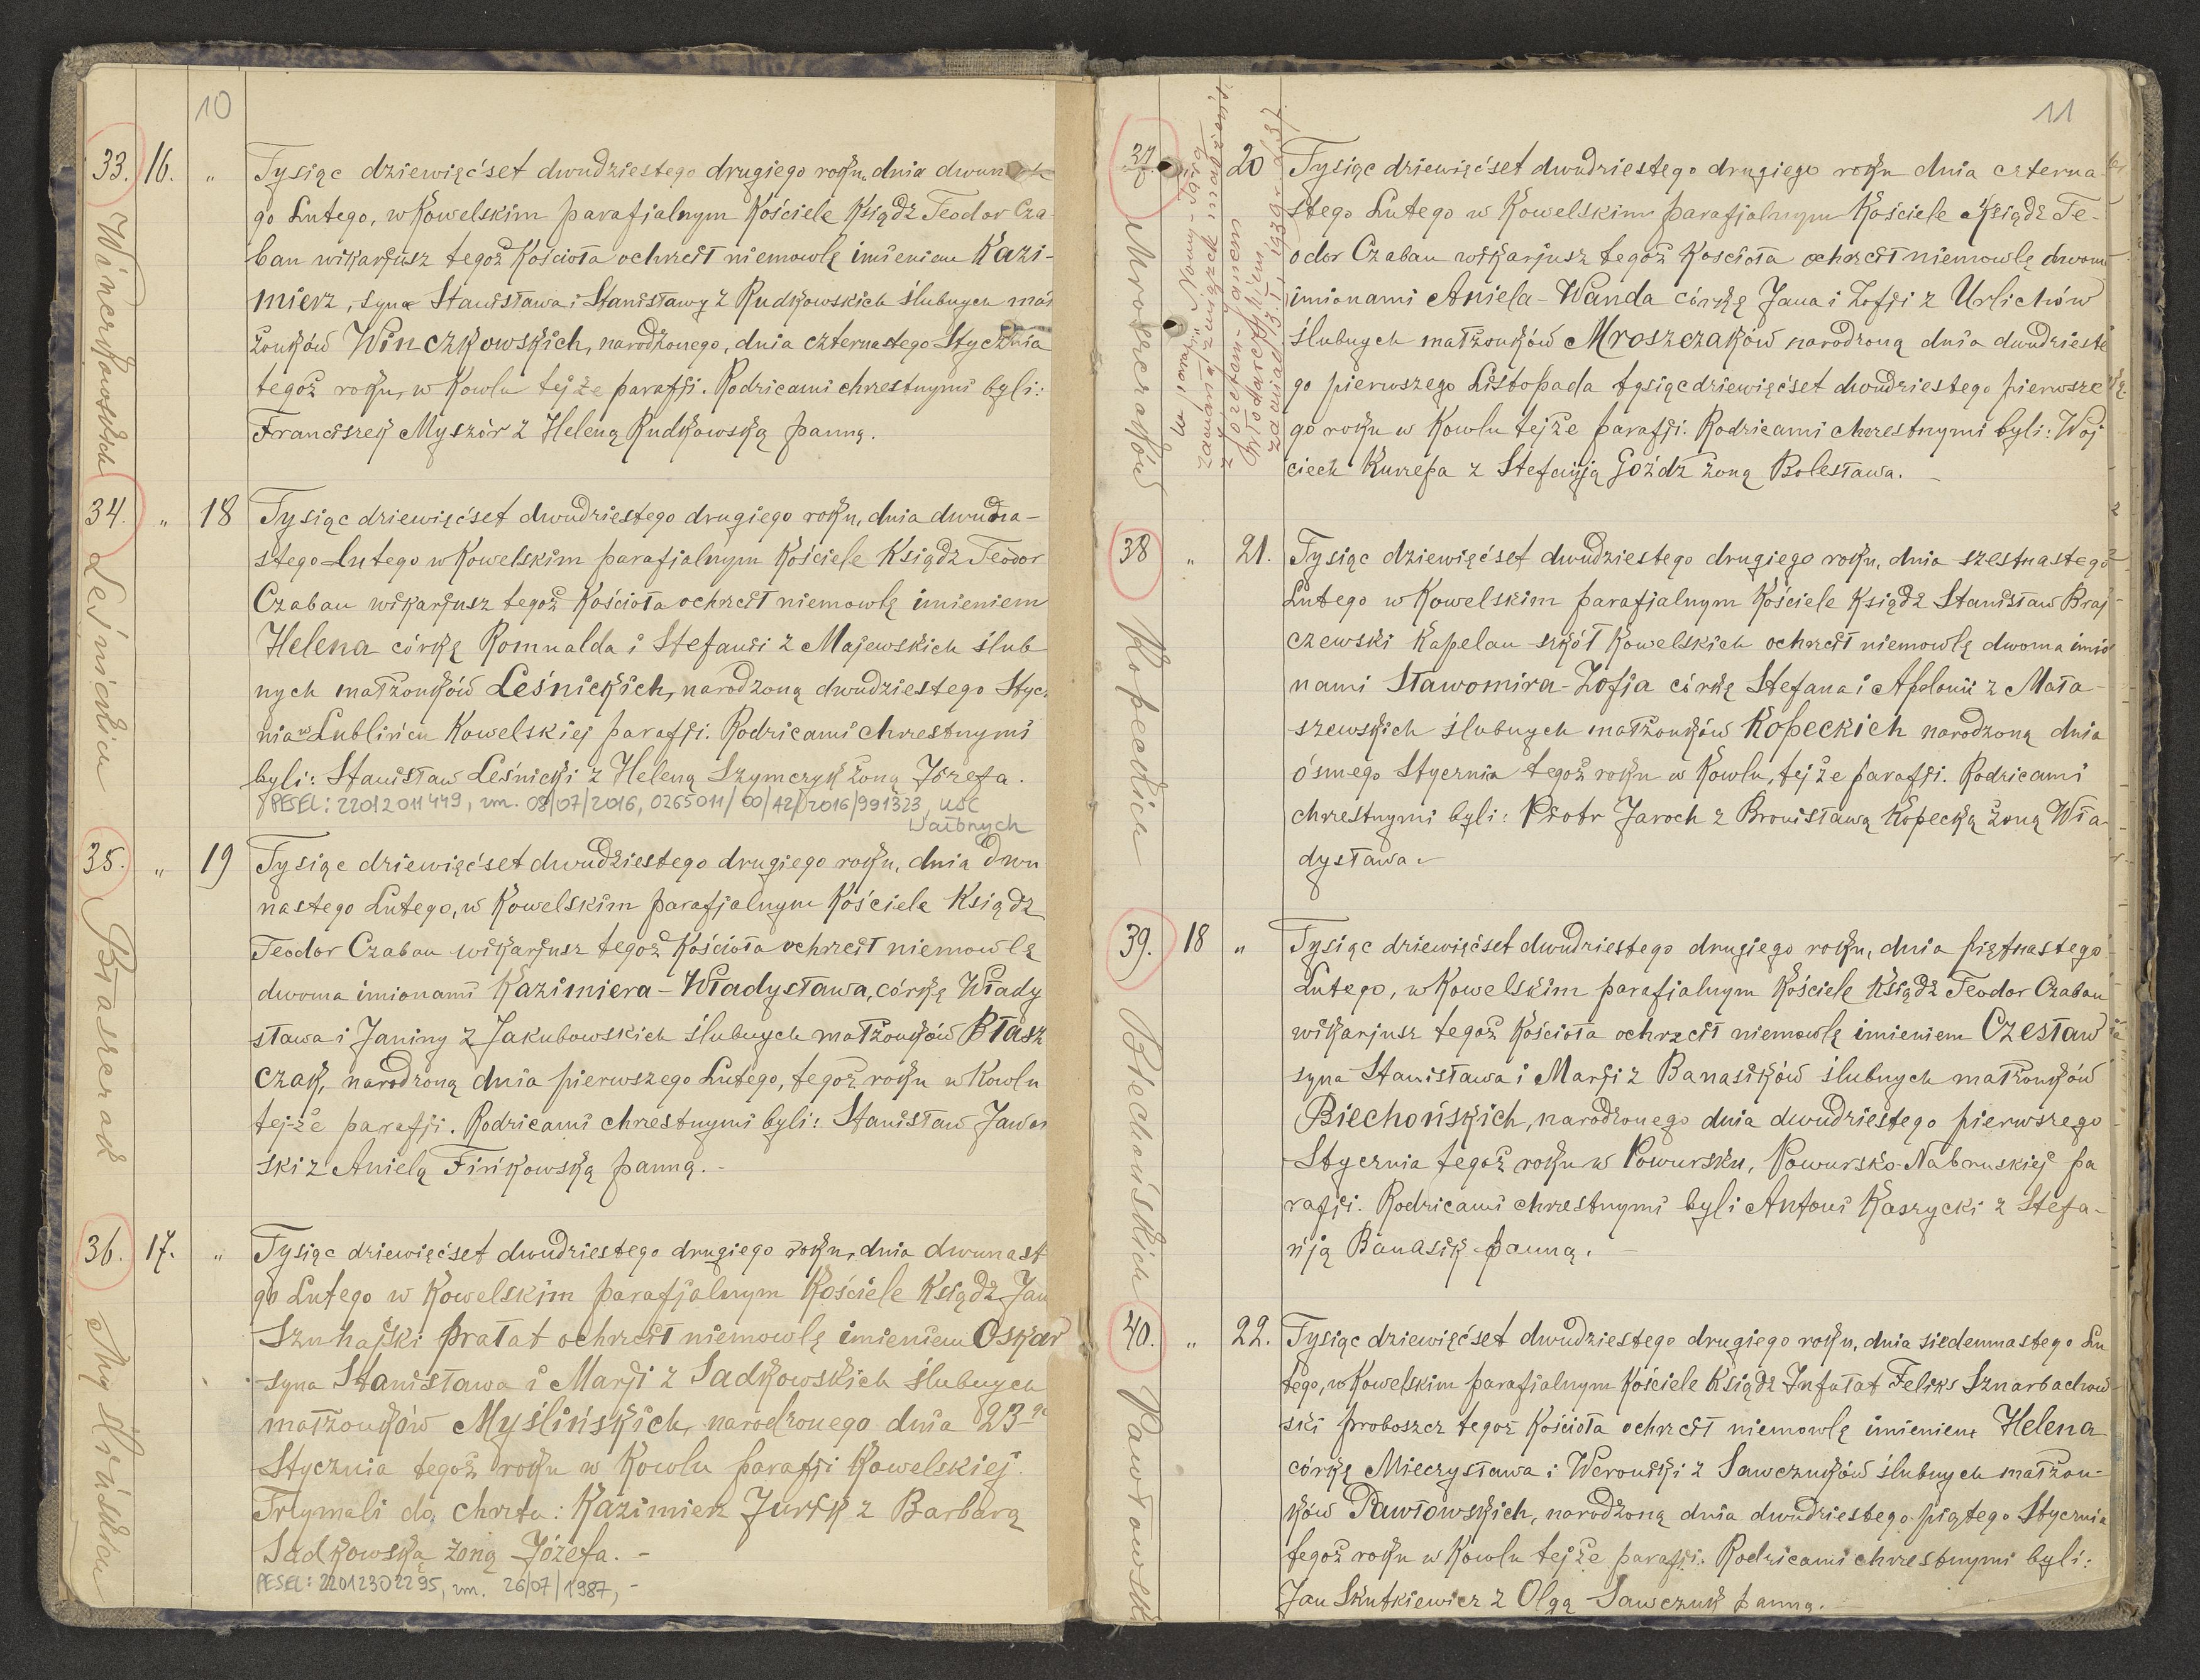 10
33. 16. „ Tysiąc dziewięćset dwudziestego drugiego roku dnia
go Lutego, w Kowelskim parafjalnym Kościele Ksiądz Teodor Cza-
ban wikarjusz tegoż Kościoła ochrzcił niemowlę imieniem Kazi-
mierz, syna Stanisława i Stanisławy z Rudkowskich ślubnych mał
żonków Winczkowskich, narodzonego, dnia czternastego Stycznia
tegoż roku, w Kowlu tejże parafji. Rodzicami chrzestnymi byli:
Franciszek Myszór z Heleną Rudkowską panną.
Winczkowskich
34. „ 18 Tysiąc dziewięćset dwudziestego drugiego roku, dnia dwuna-
stego Lutego w Kowelskim parafjalnym Kościele Ksiądz Teodor
Czaban wikarjusz tegoż Kościoła ochrzcił niemowlę imieniem
Helena córkę Romualda i Stefanii z Majewskich ślub
nych małżonków Leśnickich, narodzoną dwudziestego Stycz
nia w Lublińcu Kowelskiej parafji. Rodzicami chrzestnymi
byli: Stanisław Leśnicki z Heleną Szymczyk żoną Józefa.
PESEL: 22012011449, zm. 08/07/2016, 0265011/00/AZ/2016/991323, USC
Wałbrzych
Leśnickich
35. „ 19 Tysiąc dziewięćset dwudziestego drugiego roku, dnia dwu
nastego Lutego, w Kowelskim parafjalnym Kościele Ksiądz
Teodor Czaban wikarjusz tegoż Kościoła ochrzcił niemowlę
dwoma imionami Kazimiera-Władysława, córkę Włady
sława i Janiny z Jakubowskich ślubnych małżonków Błasz
czak, narodzoną dnia pierwszego Lutego, tegoż roku w Kowlu
tej-że parafji. Rodzicami chrzestnymi byli: Stanisław Jawor
ski z Anielą Firikowską panną. -
Błaszczak
36. 17. „ Tysiąc dziewięćset dwudziestego drugiego roku, dnia dwunaste
go Lutego w Kowelskim parafjalnym Kościele Ksiądz Jan
Sznhajski prałat ochrzcił niemowlę imieniem Oskar
syna Stanisława i Marji z Sadkowskich ślubnych
małżonków Myślińskich, narodzonego dnia 23 go
Stycznia tegoż roku w Kowlu parafji Kowelskiej.
Trzymali do chrztu: Kazimierz Jurik z Barbarą
Sadkowską żoną Józefa. -
PESEL: 22012302295, zm. 26/07/1987, -
Myślińskich
11
37. 20 Tysiąc dziewięćset dwudziestego drugiego roku dnia czterna-
stego Lutego w Kowelskim parafjalnym Kościele Ksiądz Te-
odor Czaban wikarjusz tegoż Kościoła ochrzcił niemowlę dwom
imionami Aniela-Wanda córkę Jana i Zofji z Urlichów
ślubnych małżonków Mroszczaków narodzoną dnia dwudzieste
go pierwszego Listopada tysiącdziewięćset dwudziestego pierwsze
go roku w Kowlu tejże parafji. Rodzicami chrzestnymi byli: Woj
ciech Kurzepa z Stefanją Góźdź żoną Bolesława. -
Mroszczaków
w paraf. Nowy-Targ
zawarła związek małżeński
z Józefem-Janem
38 „ 21. Tysiąc dziewięćset dwudziestego drugiego roku, dnia szestnastego
Lutego w Kowelskim parafjalnym Kościele Ksiądz Stanisław Braj-
czewski Kapelan szkół Kowelskich ochrzcił niemowlę dwoma imio
nami Sławomira-Zofja córkę Stefana i Apolonii z Mała-
szewskich ślubnych małżonków Kopeckich narodzoną dnia
ósmego Stycznia tegoż roku w Kowlu, tejże parafji. Rodzicami
chrzestnymi byli: Piotr Jaroch z Bronisławą Kopecką żoną Wła-
dysława.
Kopeckich
39. 18 „ Tysiąc dziewięćset dwudziestego drugiego roku, dnia piętnastego
Lutego, w Kowelskim parafjalnym Kościele Ksiądz Teodor Czaban
wikarjusz tegoż Kościoła ochrzcił niemowlę imieniem Czesław
syna Stanisława i Marji z Banasików ślubnych małżonków
Biechońskich, narodzonego dnia dwudziestego pierwszego
Stycznia tegoż roku w Powursku, Powursko-Nabruskiej pa
rafji. Rodzicami chrzestnymi byli Antoni Kaszycki z Stefa-
nją Banasik panną.
Biechońskich
40. „ 22. Tysiąc dziewięćset dwudziestego drugiego roku, dnia siedemnastego Lu
tego, w Kowelskim parafjalnym Kościele Ksiądz Infułat Feliks Sznarbachow
ski proboszcz tegoż Kościoła ochrzcił niemowlę imieniem Helena
córkę Mieczysława i Weroniki z Sawczuków ślubnych małżon-
ków Pawłowskich, narodzoną dnia dwudziestego piątego Stycznia
tegoż roku w Kowlu tejże parafji. Rodzicami chrzestnymi byli:
Jan Skutkiewicz z Olgą Sawczuk panną.
Pawłowski